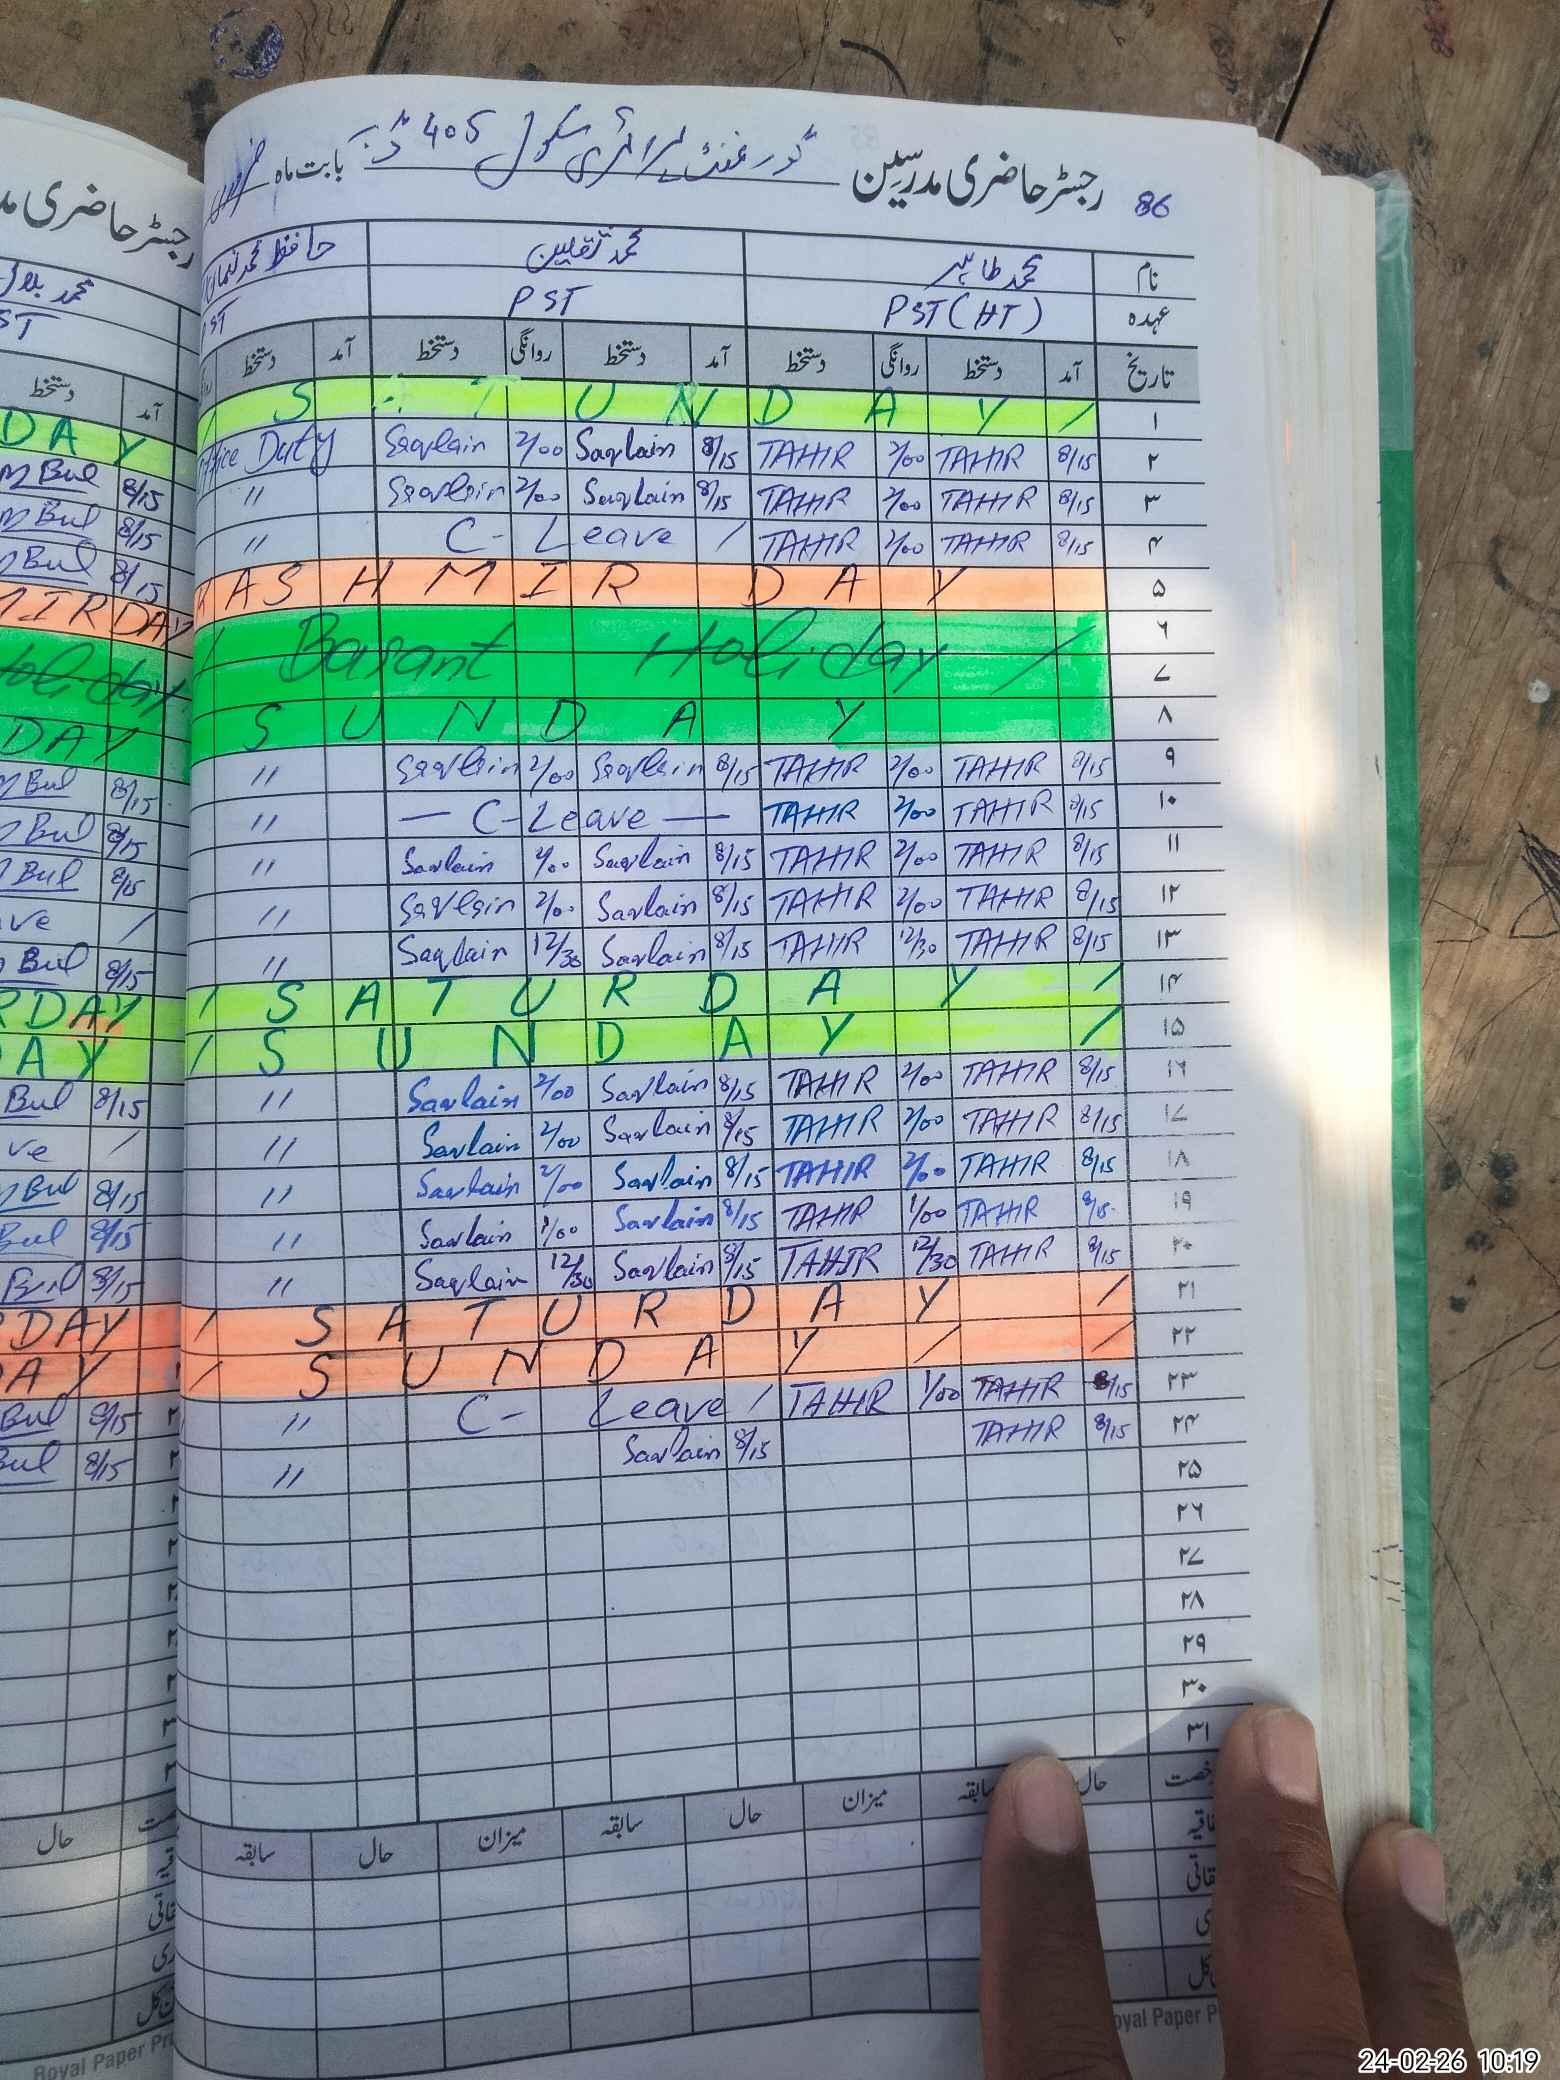 رجسٹر حاضری مدرسین گورنمنٹ پرائمری سکول 405 بابت ماہ
86
نام محمد طاہر محمد ثقلین حافظ محمد
عہدہ PST (HT) PST ST
تاریخ آمد دستخط روانگی دستخط آمد دستخط روانگی دستخط آمد دستخط
۱ S A T U N D A Y /
۲ 8/15 TAHIR 2/00 TAHIR 8/15 Saqlain 2/00 Saqlain Office Duty
۳ 8/15 TAHIR 2/00 TAHIR 8/15 Saqlain 2/00 Saqlain "
۴ 8/15 TAHIR 2/00 TAHIR C- Leave / "
۵ KASHMIR DAY
۶ / Basant Holiday /
۷
۸ SUNDAY
۹ 8/15 TAHIR 2/00 TAHIR 8/15 Saqlain 2/00 Saqlain "
۱۰ 8/15 TAHIR 2/00 TAHIR — C-Leave — "
۱۱ 8/15 TAHIR 2/00 TAHIR 8/15 Saqlain 2/00 Saqlain "
۱۲ 8/15 TAHIR 2/00 TAHIR 8/15 Saqlain 2/00 Saqlain "
۱۳ 8/15 TAHIR 12/30 TAHIR 8/15 Saqlain 12/30 Saqlain "
۱۴ / SATURDAY /
۱۵ / SUNDAY /
۱۶ 8/15 TAHIR 2/00 TAHIR 8/15 Saqlain 2/00 Saqlain "
۱۷ 8/15 TAHIR 2/00 TAHIR 8/15 Saqlain 2/00 Saqlain "
۱۸ 8/15 TAHIR 2/00 TAHIR 8/15 Saqlain 2/00 Saqlain "
۱۹ 8/15 TAHIR 1/00 TAHIR 8/15 Saqlain 1/00 Saqlain "
۲۰ 8/15 TAHIR 12/30 TAHIR 8/15 Saqlain 12/30 Saqlain "
۲۱ / SATURDAY /
۲۲ / SUNDAY / /
۲۳ 8/15 TAHIR 1/00 TAHIR C- Leave / "
۲۴ 8/15 TAHIR 8/15 Saqlain "
۲۵
۲۶
۲۷
۲۸
۲۹
۳۰
۳۱
حال سابقہ میزان حال سابقہ میزان حال سابقہ
رجسٹر حاضری
محمد بلال
ST
آمد دستخط
DAY
8/15 M Bul
8/15 M Bul
8/15 M Bul
MIR DAY
Holiday
DAY
8/15 M Bul
8/15 M Bul
8/15 M Bul
/ ve
8/15 Bul
RDAY
AY
8/15 Bul
/ ve
8/15 M Bul
8/15 Bul
8/15 Bul
DAY
AY
8/15 Bul
8/15 Bul
حال
Royal Paper Pr
oyal Paper P
24-02-26 10:19